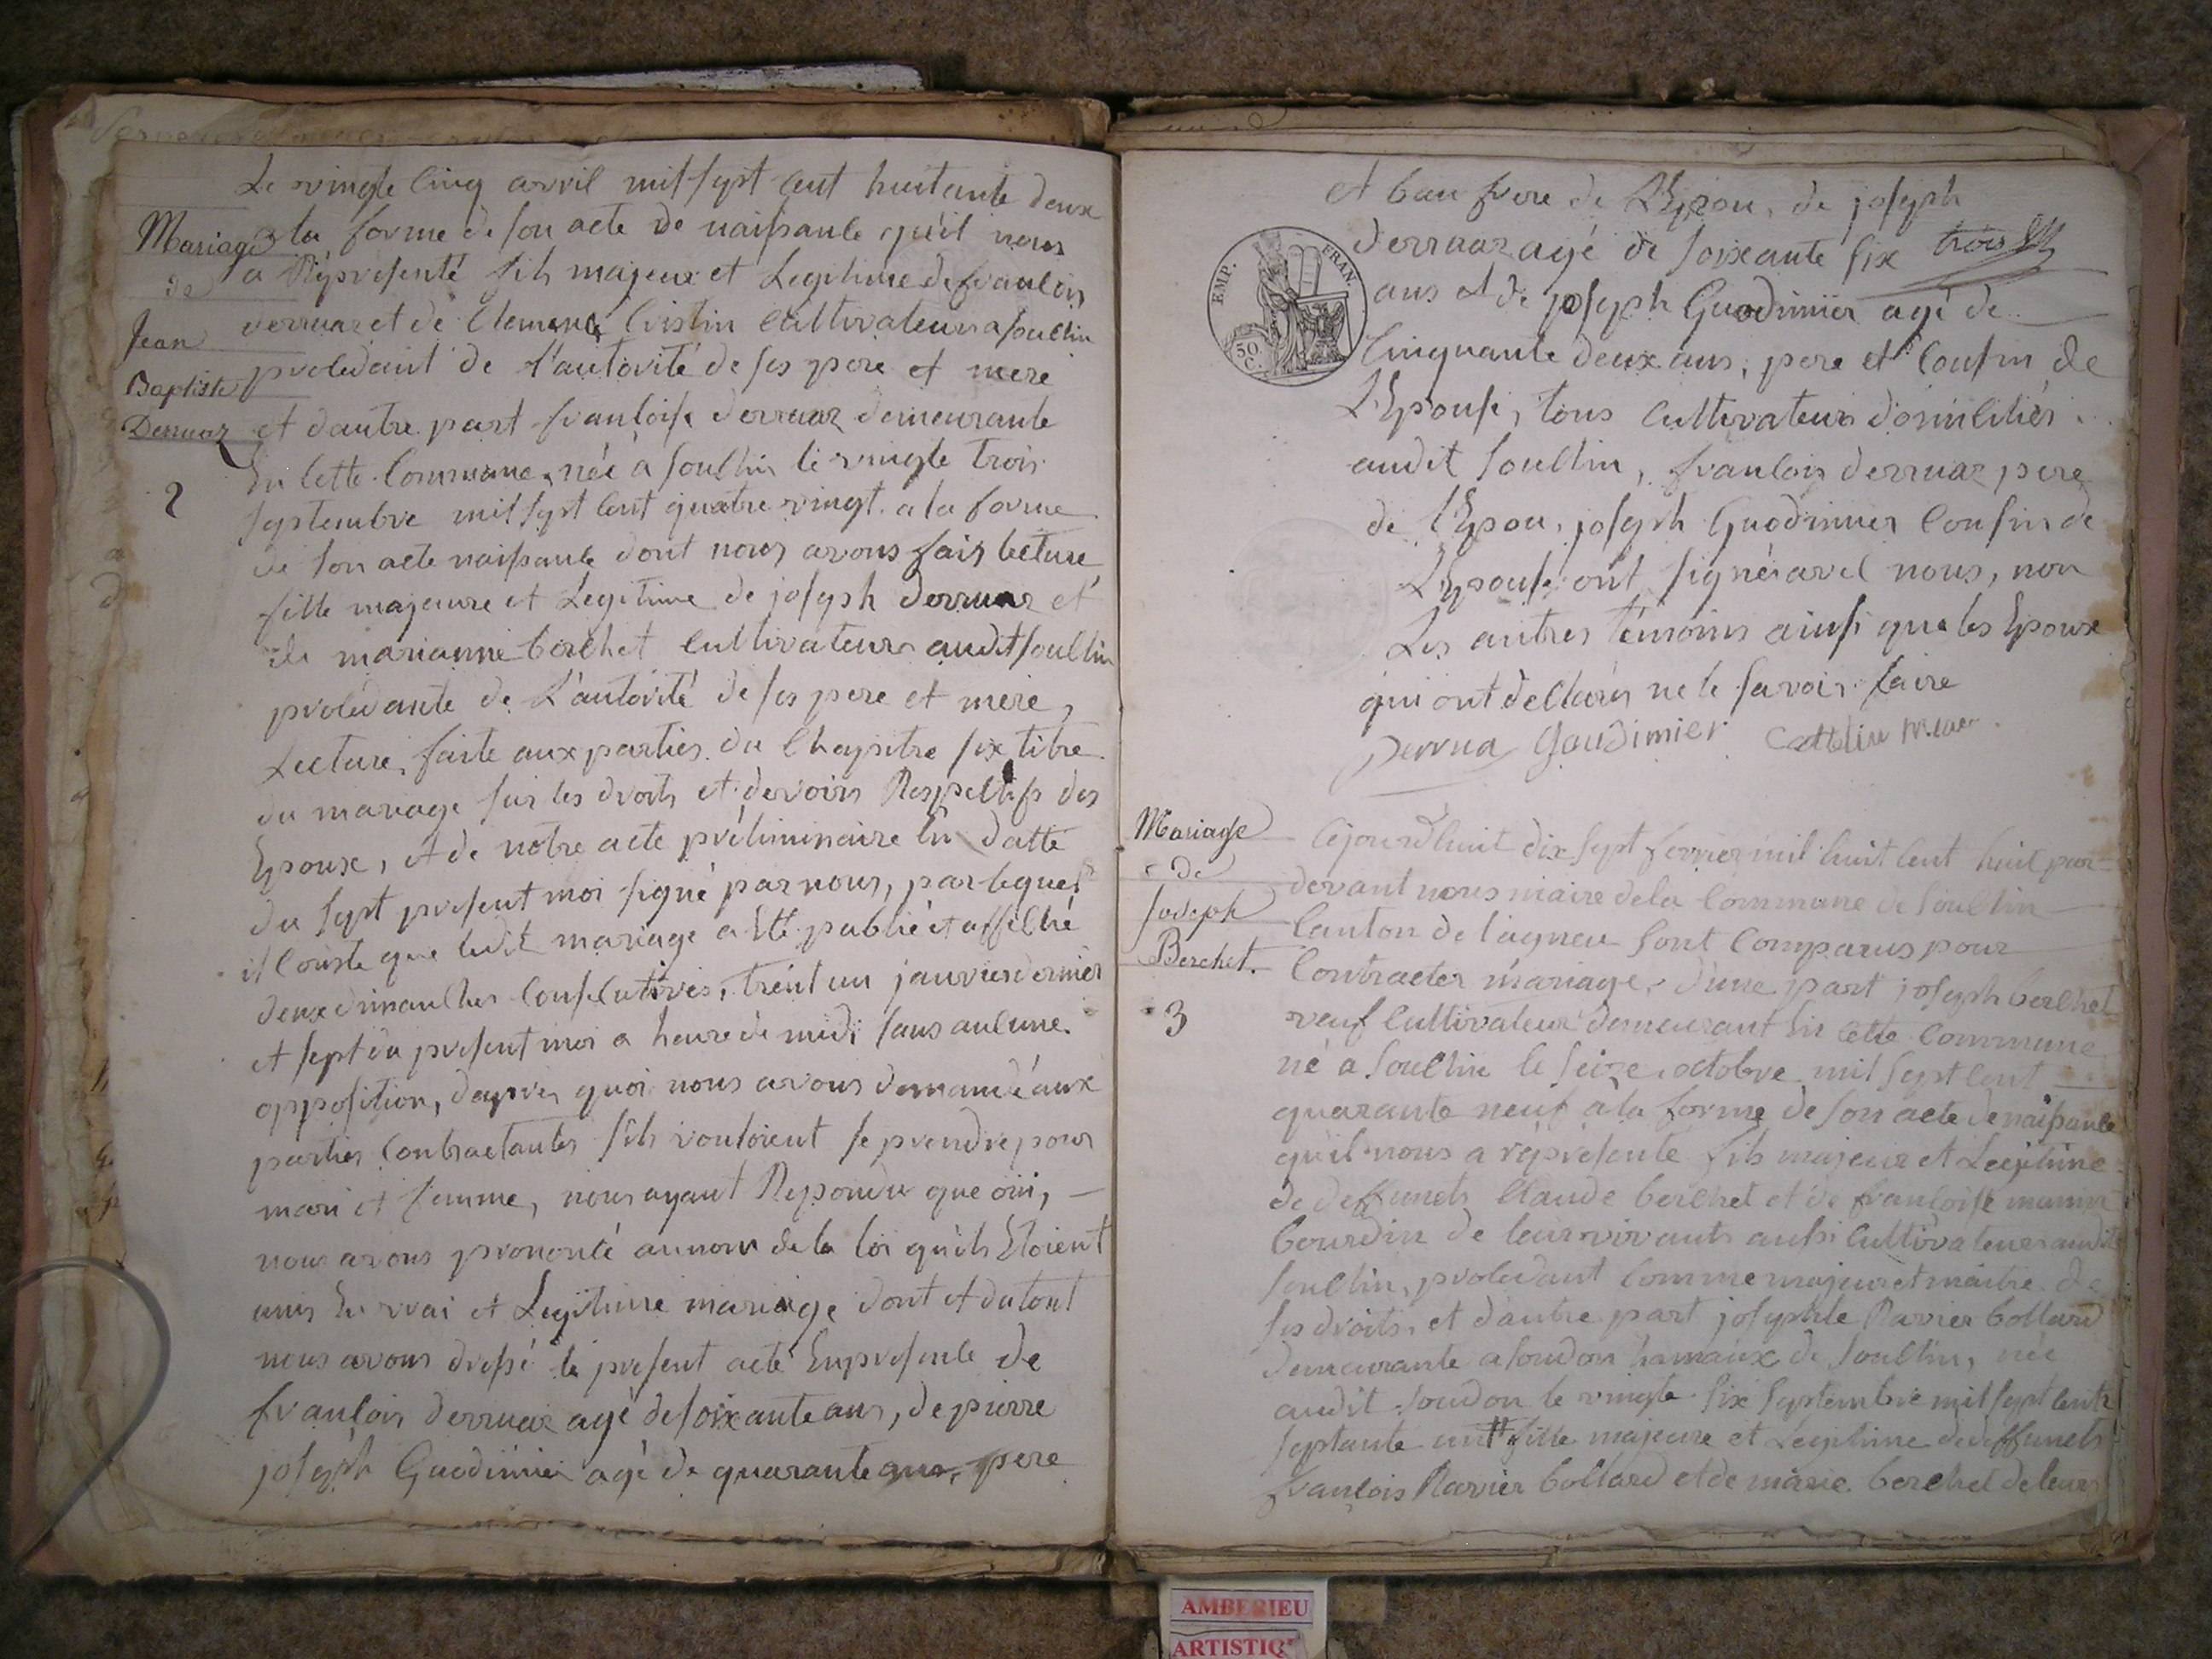 Le vingte cinq avril mil sept cent huitante deux
Mariage
de
Jean
Baptiste
Derruaz
2
a la forme de son acte de naissance qu'il nous
a Représenté fils majeur et Legitime de francois
derruaz et de Clemence Cristin Cultivateurs a souclin
procedant de l'autorité de ses pere et mere
et dautre part francoise derruaz demeurante
En cette Commune, née a souclin le vingte trois
septembre mil sept cent quatre vingt a la forme
de son acte naissance dont nous avons fais lecture
fille majeure et Legitime de joseph derruaz et
de marianne berchet cultivateurs audit souclin
procedante de L'autorité de ses pere et mere,
Lecture faite aux parties du Chapitre six titre
du mariage sur les droits et devoirs Respectifs des
Epoux, et de notre acte préliminaire En datte
du sept present moi signé par nous, par lequel
il Conste que ledit mariage a Eté publié et affiché
deux dimanches Consecutives, trent un janvier dernier
et sept du present moi a heure de midi sans aucune
opposition, dapres quoi nous avons demandé aux
parties Contractantes s'ils vouloient se prendre pour
mari et femme, nous ayant Repondu que oui,
nous avons prononcé aunom de la loi qu'ils Etoient
unis En vrai et Legitime mariage dont et dutout
nous avons dressé le present acte Enpresence de
francois derruaz agé de soixante ans, de pierre
joseph Guodimier agé de quarante ans, pere
et bau frere de L'Epou, de joseph
derruaz agé de soixante six trois
ans et de joseph Guodimier agé de
Cinquante deux ans, pere et Cousin de
L'Epouse, tous Cultivateurs domiciliés
audit souclin, francois derruaz pere
de l'Epou, joseph Guodimier Cousin de
L'Epouse ont signés avec nous, non
Les autres témoins ainsi que les Epoux
qui ont declarés ne le savoir faire
EMP. FRAN.
50 C.
Derrua Gaudimier Cattelin
Mariage
de
Joseph
Berchet.
3
Cejourdhuit dix sept fevrier mil huit cent huit par
devant nous maire dela Commune de souclin
Canton de lagneu sont Comparus pour
Contracter mariage, d'une part joseph berchet
veuf Cultivateur demeurant En cette Commune
né a souclin le seize octobre mil sept cent
quarante neuf a la forme de son acte de naissance
qu'il nous a représenté fils majeur et Legitime
de deffunets Claude berchet et de francoise
bourdin de leur vivants aussi Cultivateurs audit
souclin, procedant Comme majeur et maitre de
ses droits, et d'autre part josephte Ravier bollard
demeurante a soudon hamaux de souclin, née
audit soudon le vingte six septembre mil sept cents
septante un fille majeure et Legitime de deffunets
françois Ravier bollard et de marie berchet de leurs
AMBERIEU
ARTISTIQ